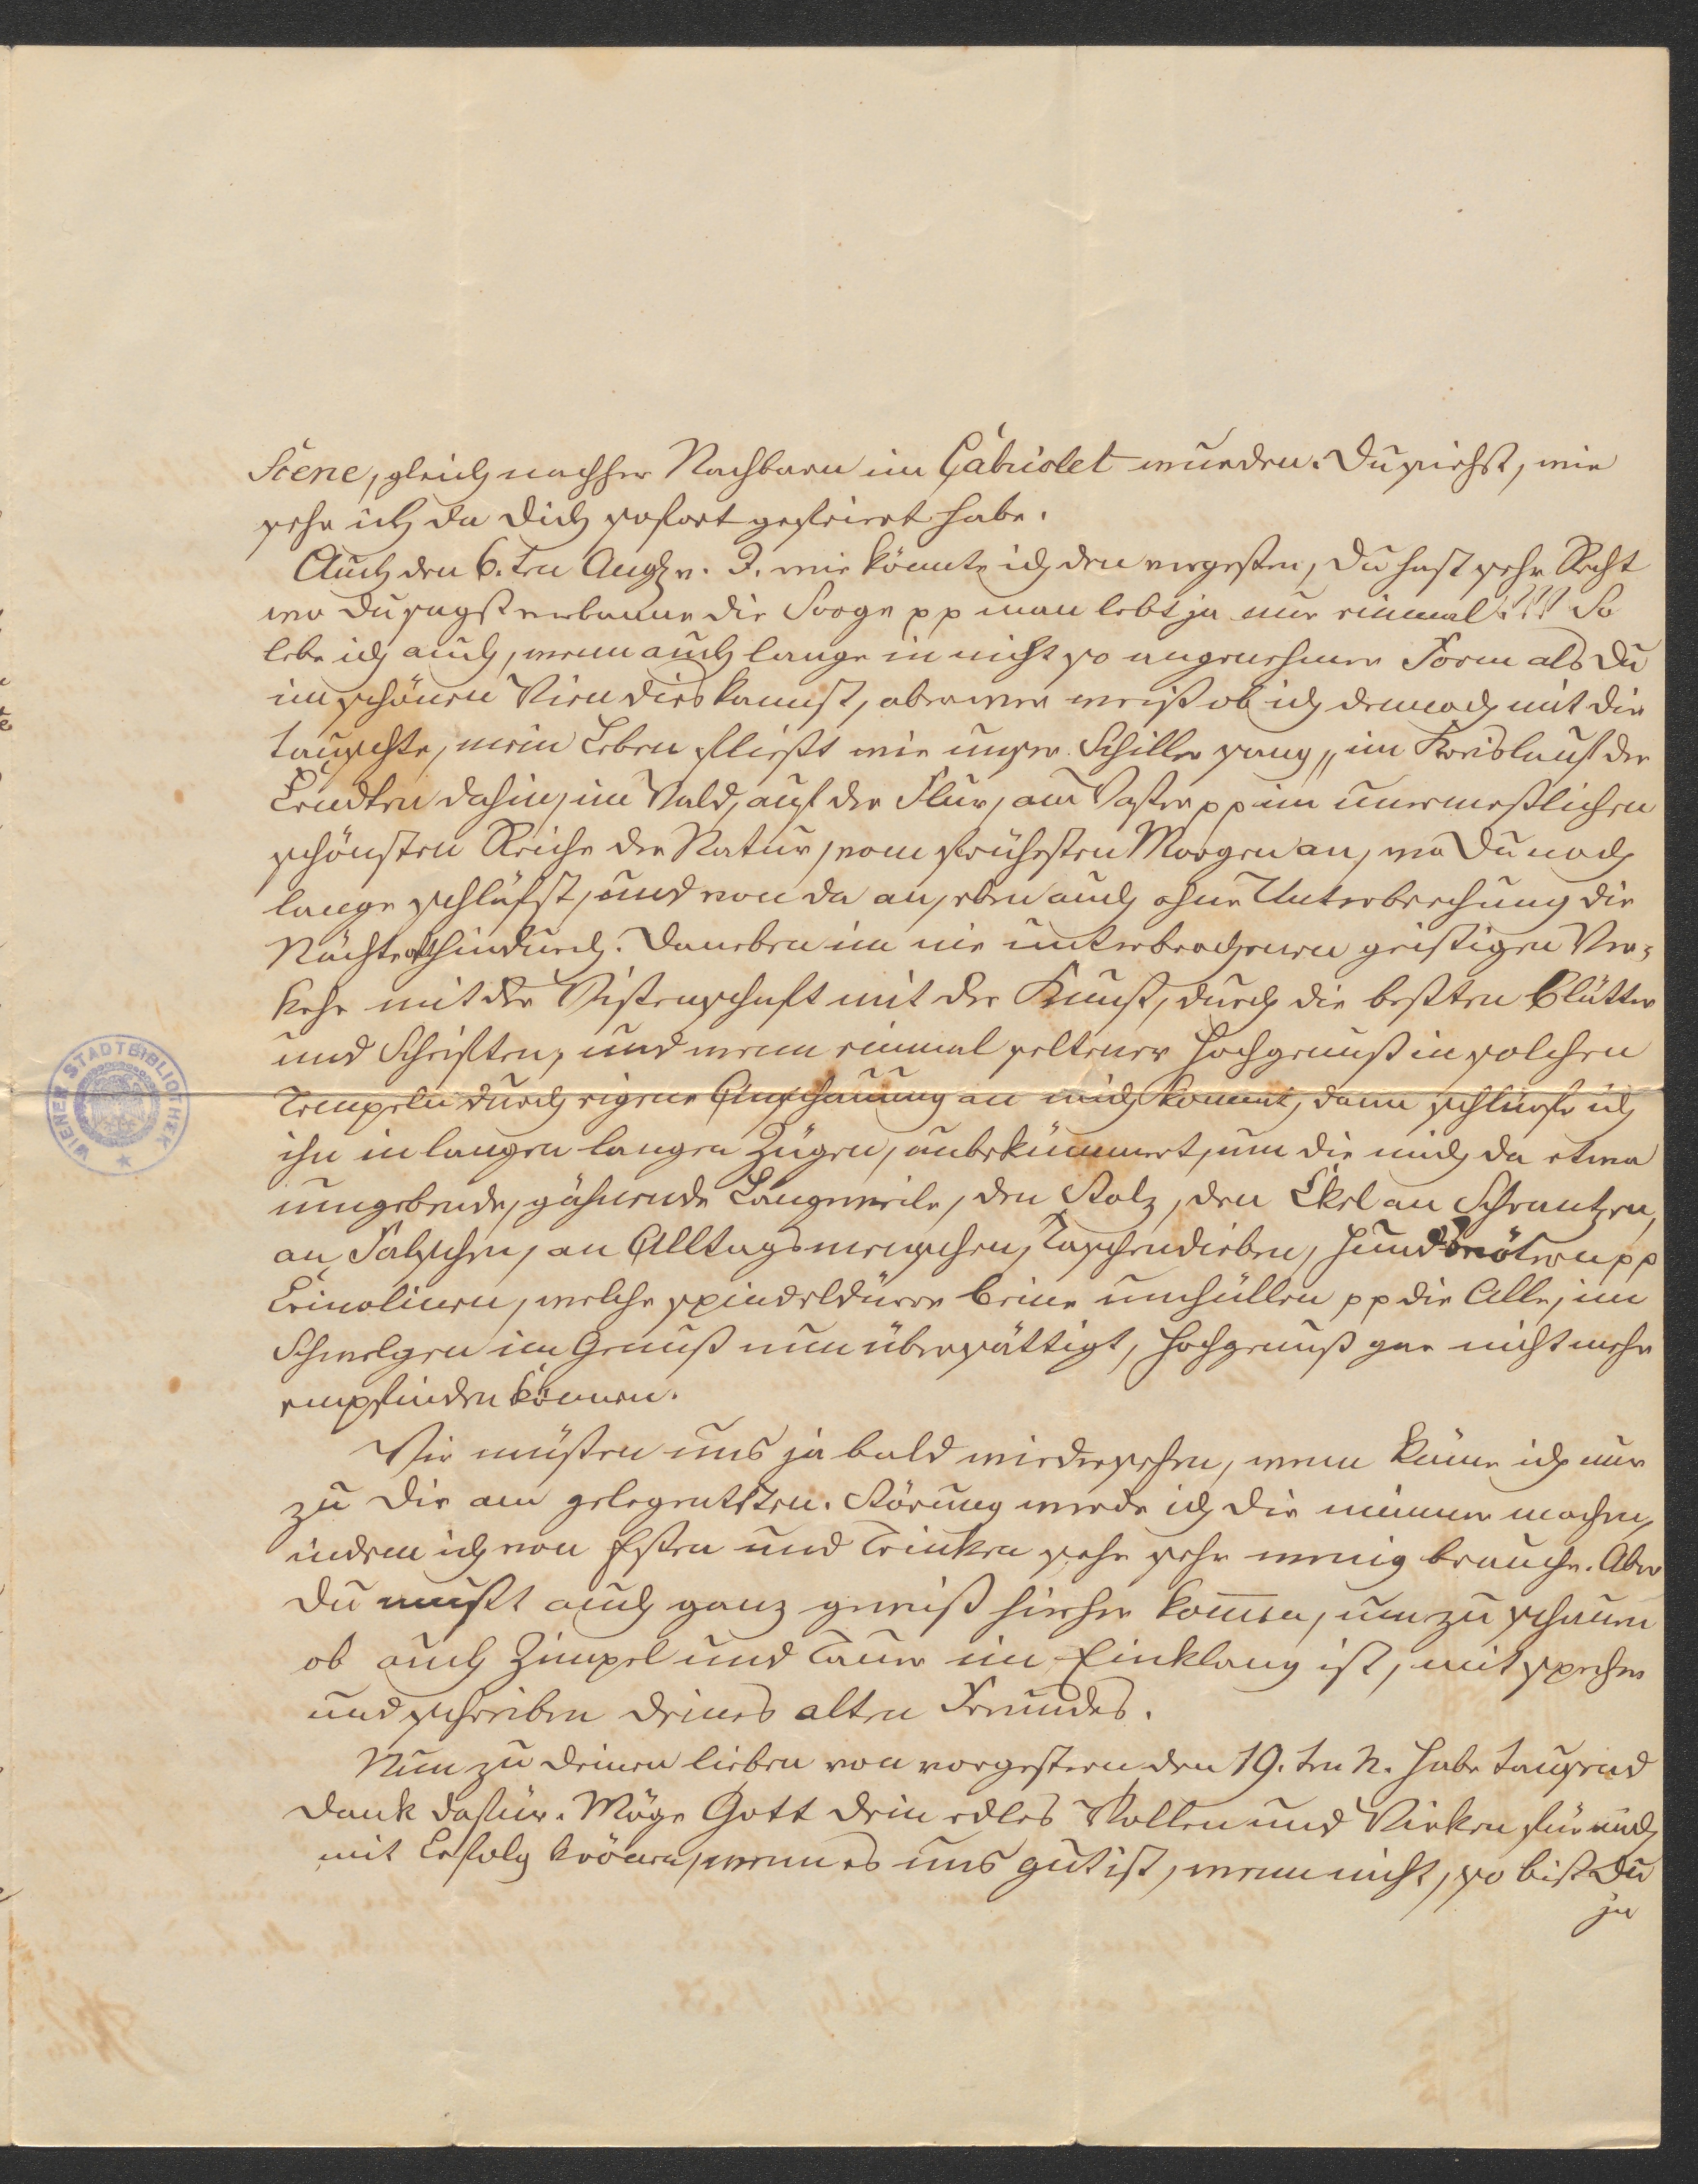 Scene, gleich nachher Nachbarn im Cabriolet wurden. Du siehst, wie
sehr ich da Dich sofort gefeiert habe.
Auch den 6. ten Aug v. J. wie könnte ich den vergessen, Du hast sehr Recht
wo Du sagst verbanne die Sorge pp man lebt ja nur einmal!!! So
lebe ich auch, wenn auch lange in nicht so angenehmer Form als Du
im schönen Wien dies kannst, aber wer weiß ob ich dennoch mit Dir
tauschte, mein Leben fließt wie unser Schiller sang „im Kreislauf der
Erndten dahin, im Wald, auf der Flur, am Wasser pp im unermeßlichen
schönsten Reiche der Natur, vom frühesten Morgen an, wo Du noch
lange schläfst, und von da an, eben auch ohne Unterbrechung die
Nächte hindurch. Daneben im nie unterbrochenen geistigen Ver-
kehr mit der Wissenschaft mit der Kunst, durch die besten Blätter
und Schriften, und wenn einmal seltener Hochgenuß in solchen
Tempeln durch eigene Anschauung an mich kommt, dann schlürfe ich
ihn in langen langen Zügen, unbekümmert, um die mich da etwa
umgebende, gähnende Langeweile, den Stolz, den Ekel an Schranzen,
an Falschen, an Alltagsmenschen, Taschendieben, pp
Crinolinen, welche spindeldürre Beine umhüllen pp die Alle, im
Schwelgen im Genuß nun übersättigt, Hochgenuß gar nicht mehr
empfinden können.
Wir müssen uns ja bald wiedersehen, wenn käme ich nur
zu Dir am gelegentsten. Störung werde ich Dir nimmer machen,
indem ich von Essen und Trinken sehr sehr wenig brauche. Aber
Du mußt auch ganz gewiß hierher kommen, um zu schauen
ob auch Zimpel und Taur im Einklang ist, mit sprechen
und schreiben Deines alten Freundes.
Nun zu Deinen lieben von vorgestern den 19. ten h. habe tausend
Dank dafür. Möge Gott Dein edles Wollen und Wirken für mich
mit Erfolg krönen, wenn es uns gut ist, wenn nicht, so bist Du
ja
WIENER STADTBIBLIOTHEK